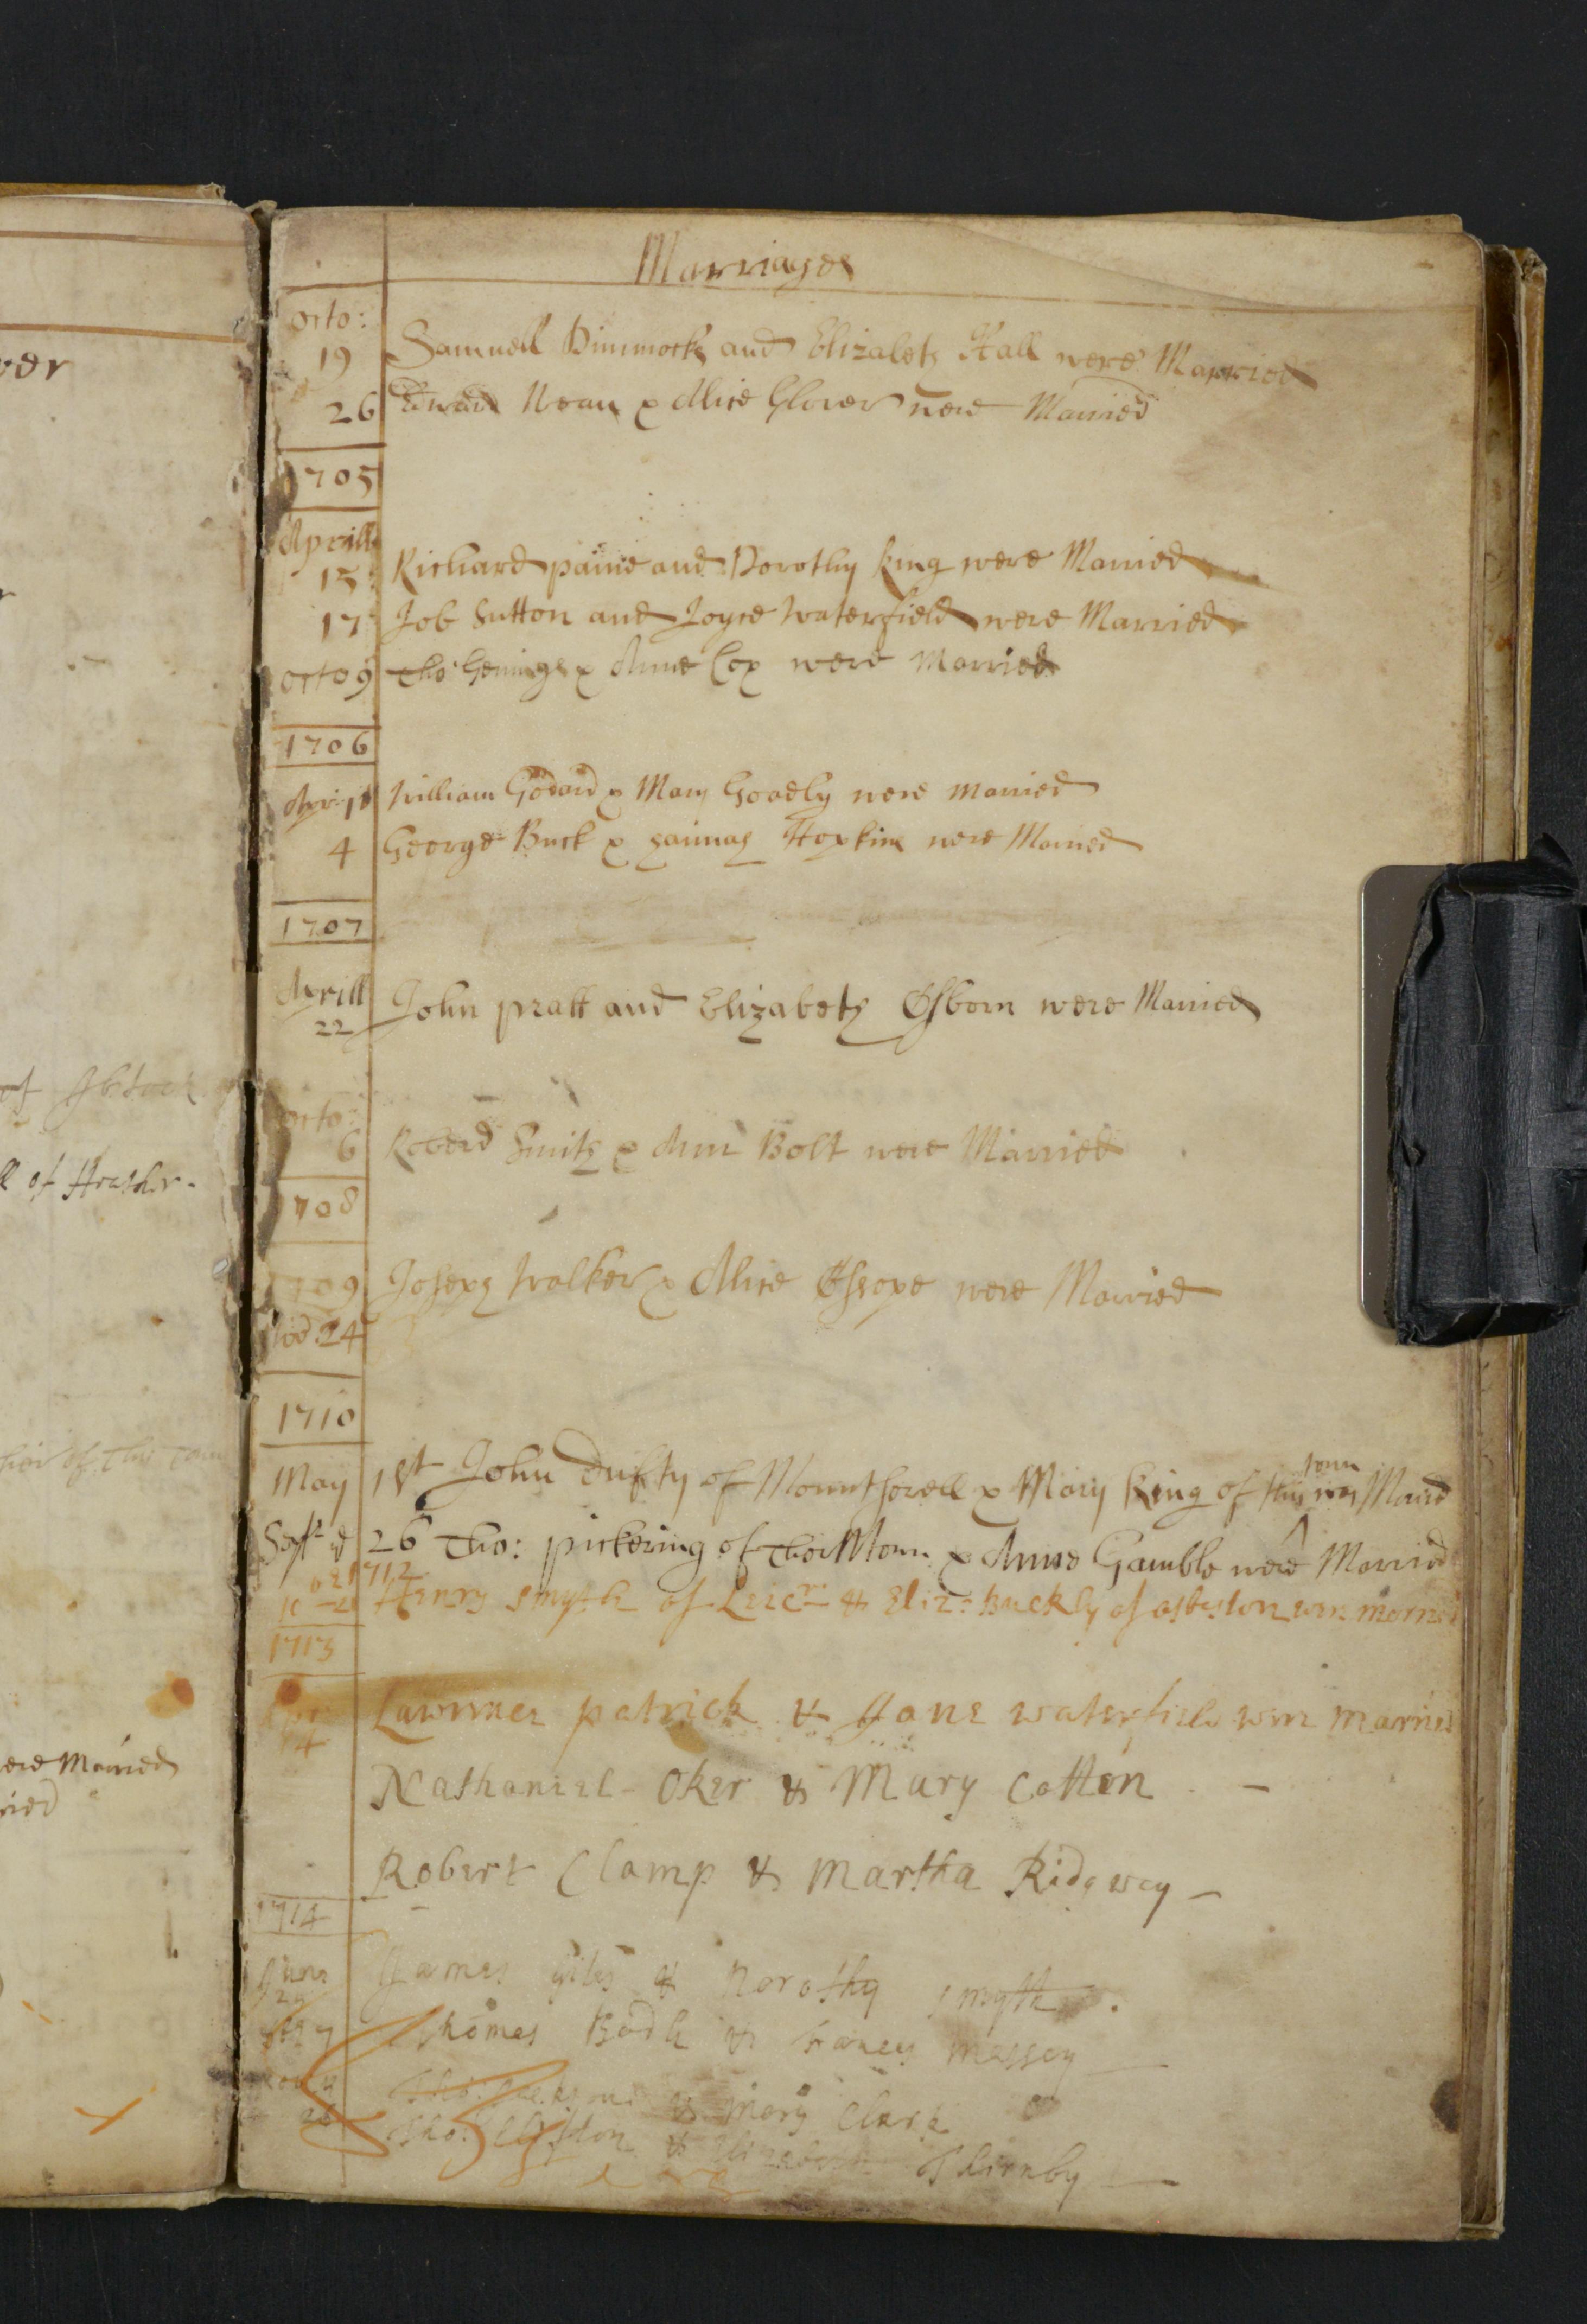 Marriages
Octo:
19 Samuell Dimmock and Elizabeth Hall were Married
26 Edward Neau & Alice Glover were Married
1705
Aprill
15 Richard paine and Dorothy King were Married
17 Job Sutton and Joyce Waterfield were Married
Octo 9 Tho Genings & Anne Cox were Married
1706
William Godard & Mary Goadby were married
4 George Buck & Hopkins were Married
1707
Aprill
22 John pratt and Elizabeth Osborn were Married
Octo:
6 Roberd Smith & Ann Bolt were Married
1708
1709 Joseph Walker & Alice were Married
24
1710
May 1st John Dufty of Mountsorell & Mary King of this town Maried
Sept 26 Tho: pickering of & Anne Gamble were Married
1712
Henry Smyth of Leicr & Eliz: Buckly of were married
1713
Lawrence patrick & Jane waterfield were married
Nathaniel Oker & Mary Cotten
Robert Clamp & Martha Ridgway
1714
June
James Giles & Dorothy Smyth
Thomas & Massey
& Mary Clark
Tho: & Elizabeth Thirnby
of
of Heather
were Married